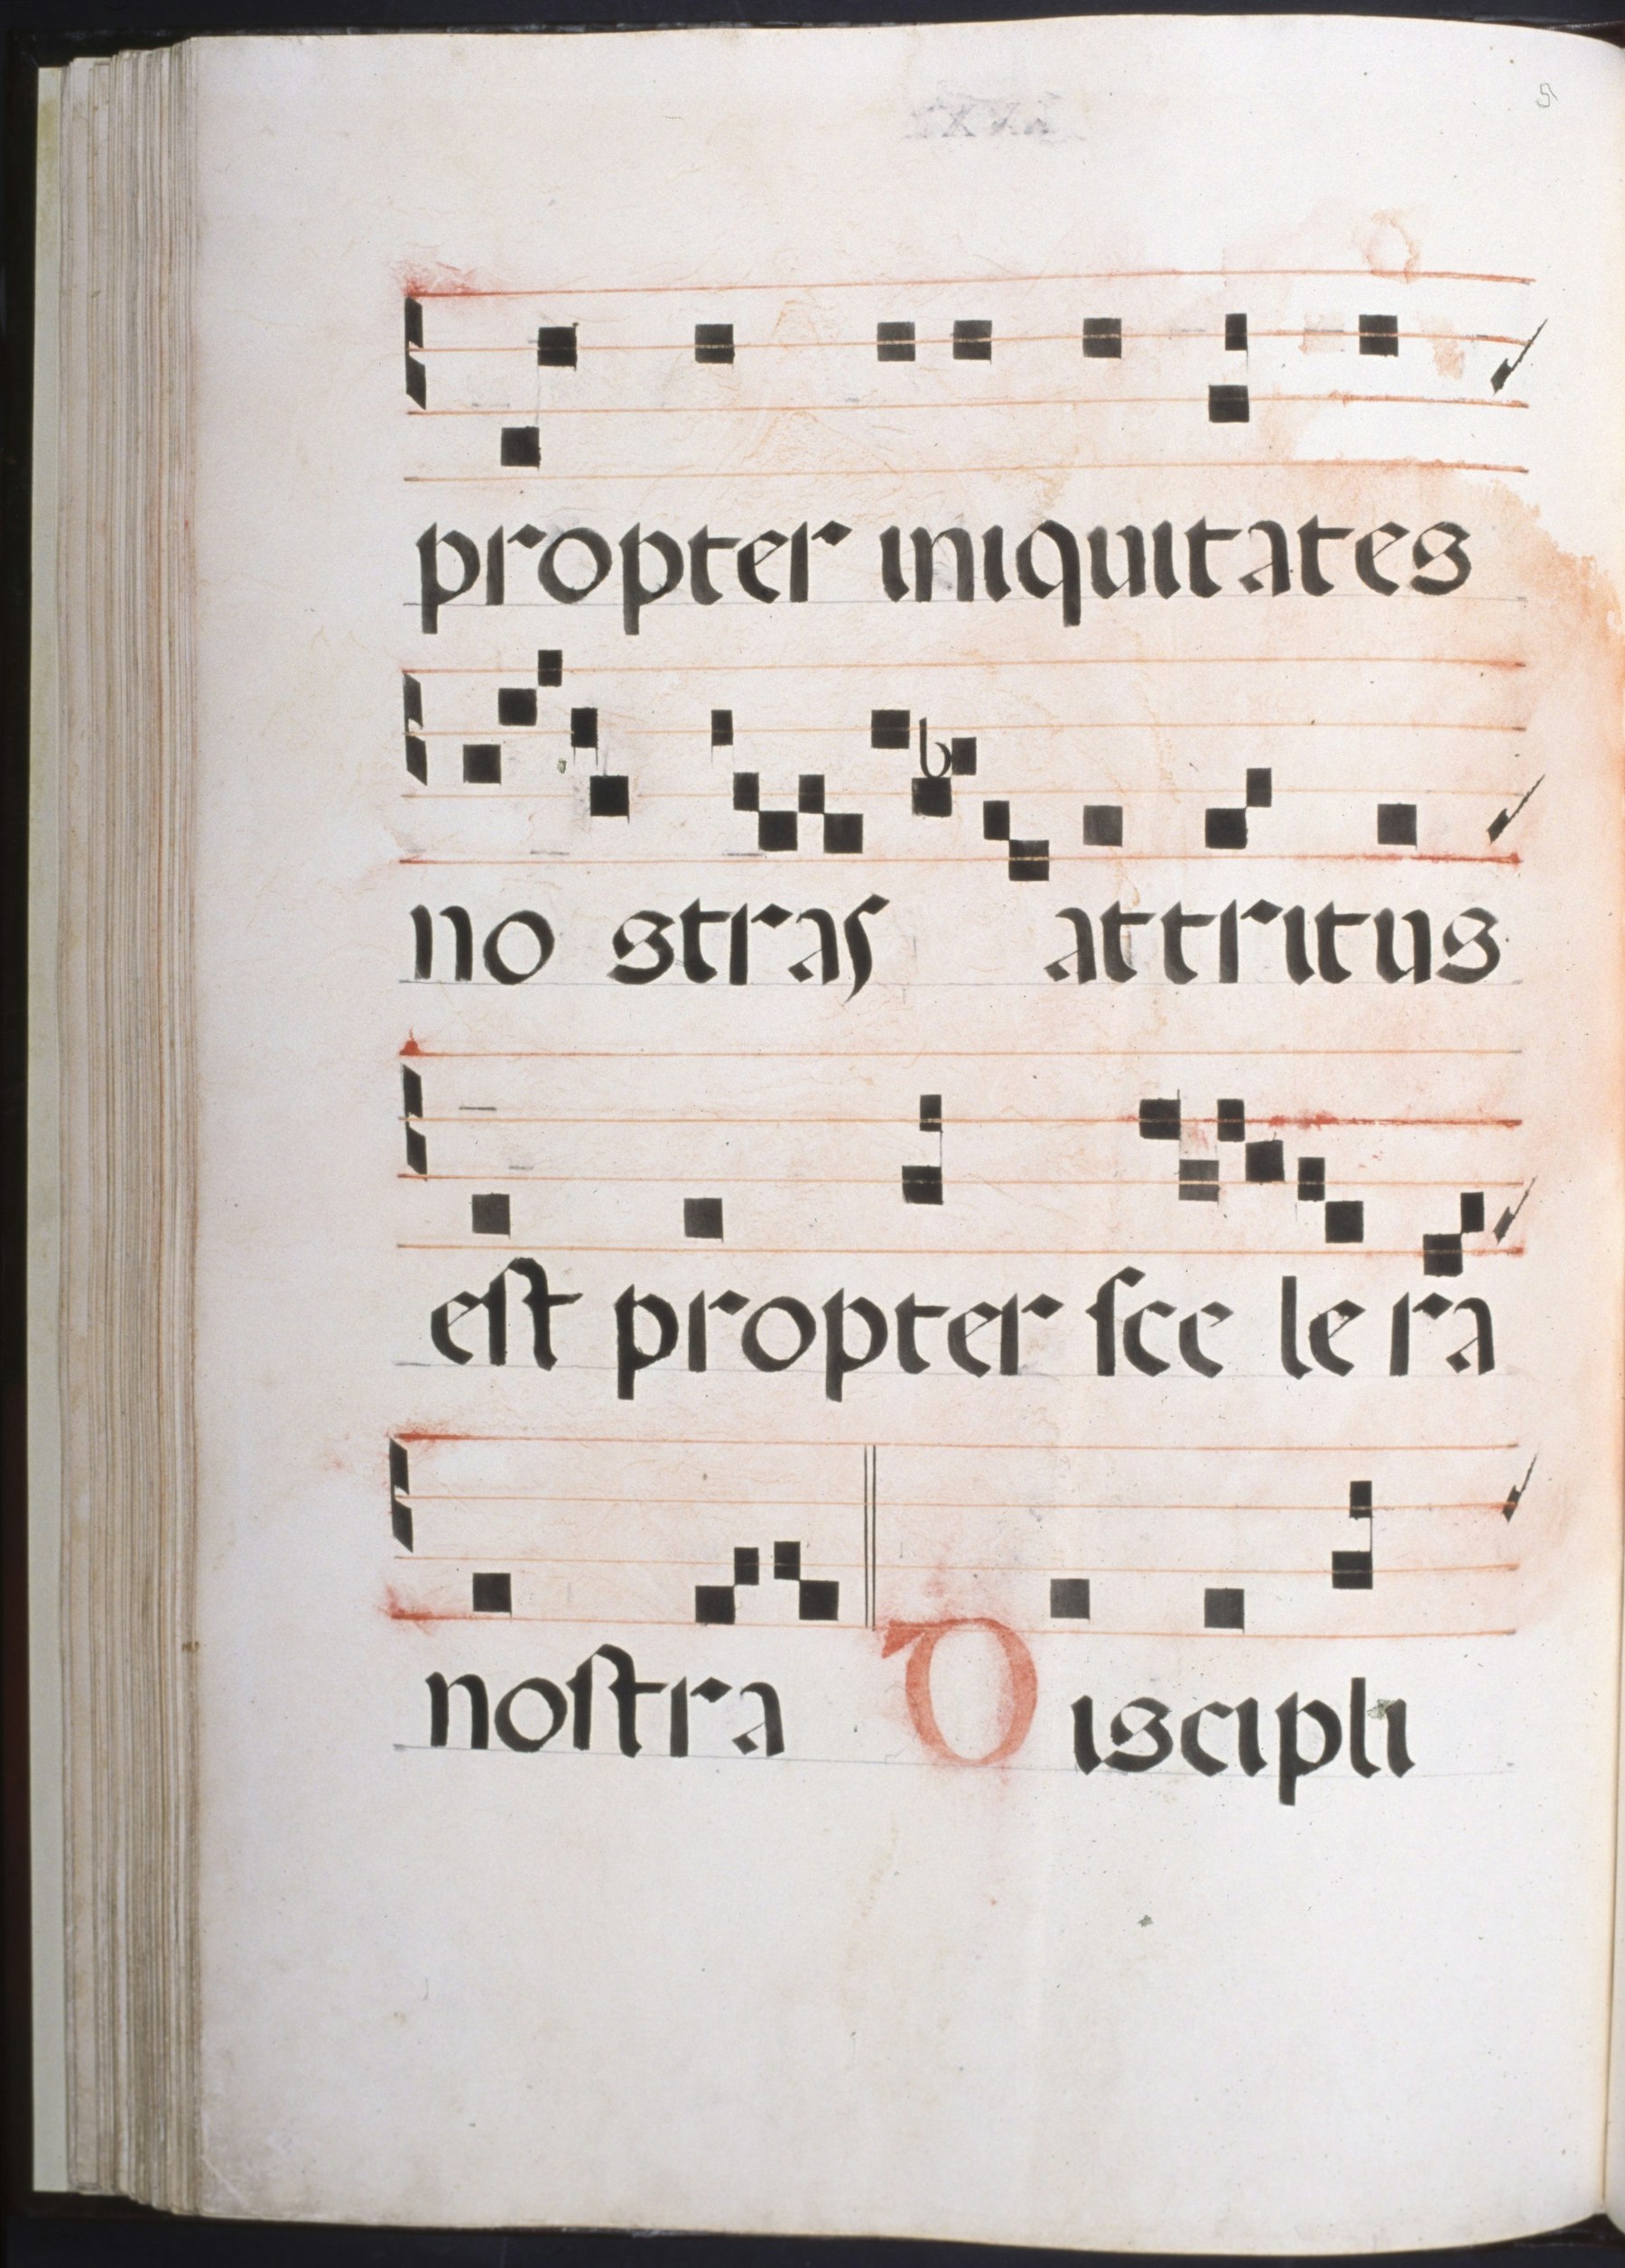 5
propter iniquitates
b
no stras attritus
eſt propter ſce le ra
noſtra Discipli